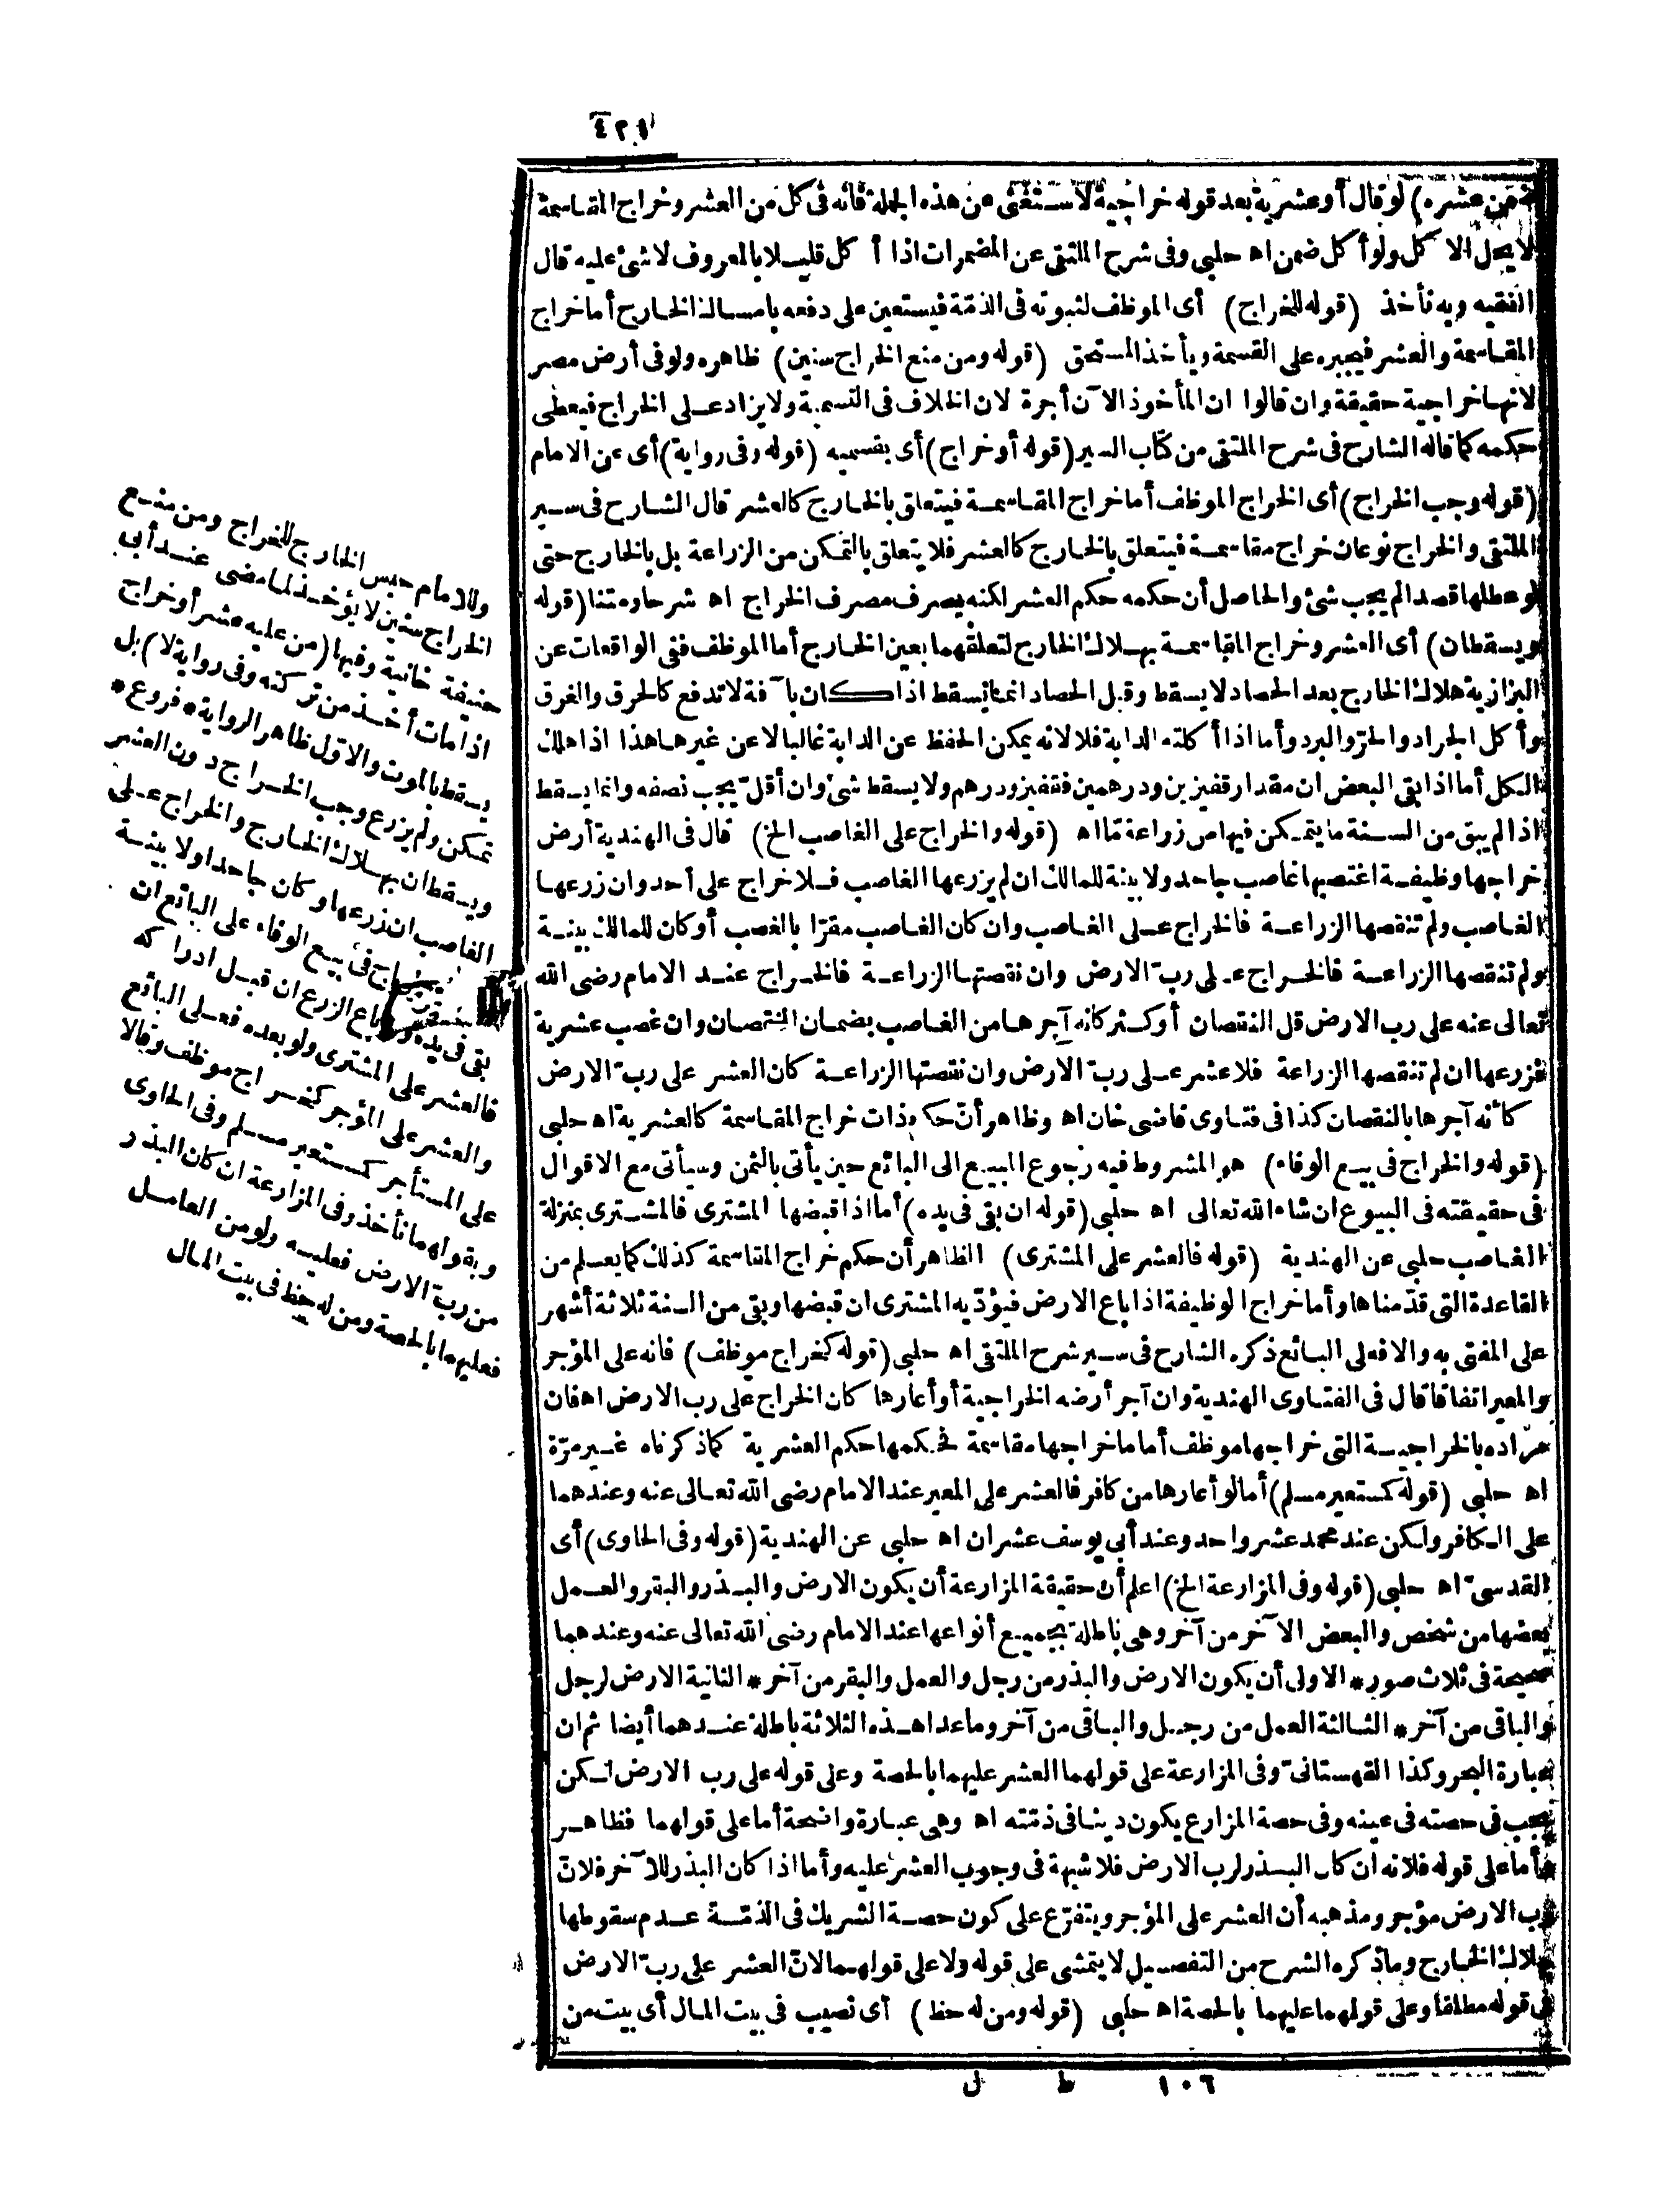 ٤٢١
ضمن عشره) لو قال أو عشرية بعد قوله خراجية لاستغنى عن هذه الجملة فانه فى كل من العشر وخراج المقاسمة
لا يحل الاكل ولو أكل ضمن اه حلبى وفى شرح الملتقى عن المضمرات اذا أكل قليلا بالمعروف لا شئ عليه قال
الفقيه وبه نأخذ (قوله للخراج) أى الموظف لثبوته فى الذمّة فيستعين على دفعه بامساك الخارج أما خراج
المقاسمة والعشر فيجبره على القسمة ويأخذ المستحق (قوله ومن منع الخراج سنين) ظاهره ولو فى أرض مصر
لانها خراجية حقيقة وان قالوا ان المأخوذ الآن أجرة لان الخلاف فى التسمية ولا يزاد على الخراج فيعطى
حكمه كما قاله الشارح فى شرح الملتقى من كتاب السير (قوله أو خراج) أى بقسميه (قوله وفى رواية) أى عن الامام
(قوله وجب الخراج) أى الخراج الموظف أما خراج المقاسمة فيتعلق بالخارج كالعشر قال الشارح فى سير
الملتقى والخراج نوعان خراج مقاسمة فيتعلق بالخارج كالعشر فلا يتعلق بالتمكن من الزراعة بل بالخارج حتى
لو عطلها قصدا لم يجب شئ والحاصل أن حكمه حكم العشر لكنه يصرف مصرف الخراج اه شرحا ومتنا (قوله
ويسقطان) أى العشر وخراج المقاسمة بهلاك الخارج لتعلقهما بعين الخارج أما الموظف ففى الواقعات عن
البزازية هلاك الخارج بعد الحصاد لا يسقط وقبل الحصاد انما يسقط اذا كان بآفة لا تدفع كالحرق والغرق
وأكل الجراد والحرّ والبرد وأما اذا أكلته الدابة فلا لانه يمكن الحفظ عن الدابة غالبا لا عن غيرها هذا اذا هلك
الكل أما اذا بقى البعض ان مقدار قفيزين ودرهمين فقفيز ودرهم ولا يسقط شئ وان أقلّ يجب نصفه وانما يسقط
اذا لم يبق من السنة ما يتمكن فيها من زراعة مّا اه (قوله والخراج على الغاصب الخ) قال فى الهندية أرض
خراجها وظيفة اغتصبها غاصب جاحد ولا بينة للمالك ان لم يزرعها الغاصب فلا خراج على أحد وان زرعها
الغاصب ولم تنقصها الزراعة فالخراج على الغاصب وان كان الغاصب مقرّا بالغصب أو كان للمالك بينة
ولم تنقصها الزراعة فالخراج على ربّ الارض وان نقصتها الزراعة فالخراج عند الامام رضى الله
تعالى عنه على رب الارض قل النقصان أو كثر كانه آجرها من الغاصب بضمان النقصان وان غصب عشرية
فزرعها ان لم تنقصها الزراعة فلا عشر على ربّ الارض وان نقصتها الزراعة كان العشر على ربّ الارض
كأنه آجرها بالنقصان كذا فى فتاوى قاضى خان اه وظاهر أنّ حكم ذات خراج المقاسمة كالعشرية اه حلبى
(قوله والخراج فى بيع الوفاء) هو المشروط فيه رجوع المبيع الى البائع حين يأتى بالثمن وسيأتى مع الاقوال
فى حقيقته فى البيوع ان شاء الله تعالى اه حلبى (قوله ان بقى فى يده) أما اذا قبضها المشترى فالمشترى بمنزلة
الغاصب حلبى عن الهندية (قوله فالعشر على المشترى) الظاهر أن حكم خراج المقاسمة كذلك كما يعلم من
القاعدة التى قدّمناها وأما خراج الوظيفة اذا باع الارض فيؤدّيه المشترى ان قبضها وبقى من السنة ثلاثة أشهر
على المفتى به والا فعلى البائع ذكره الشارح فى سير شرح الملتقى اه حلبى (قوله كخراج موظف) فانه على المؤجر
والمعير اتفاقا قال فى الفتاوى الهندية وان آجر أرضه الخراجية أو أعارها كان الخراج على رب الارض اه فان
مرّاده بالخراجية التى خراجها موظف أما ما خراجها مقاسمة فحكمها حكم العشرية كما ذكرناه غير مرّة
اه حلبى (قوله كمستعير مسلم) أما لو أعارها من كافر فالعشر على المعير عند الامام رضى الله تعالى عنه وعندهما
على الكافر ولكن عند محمد عشر واحد وعند أبى يوسف عشران اه حلبى عن الهندية (قوله وفى الحاوى) أى
القدسىّ اه حلبى (قوله وفى المزارعة الخ) اعلم أن حقيقة المزارعة أن يكون الارض والبذر والبقر والعمل
بعضها من شخص والبعض الآخر من آخر وهى باطلة بجميع أنواعها عند الامام رضى الله تعالى عنه وعندهما
صحيحة فى ثلاث صور * الاولى أن يكون الارض والبذر من رجل والعمل والبقر من آخر * الثانية الارض لرجل
والباقى من آخر * الثالثة العمل من رجل والباقى من آخر وما عدا هذه الثلاثة باطلة عندهما أيضا ثم ان
عبارة البحر وكذا القهستانىّ وفى المزارعة على قولهما العشر عليهما بالحصة وعلى قوله على رب الارض لكن
يجب فى حصته فى عينه وفى حصة المزارع يكون دينا فى ذمّته اه وهى عبارة واضحة أما على قولهما فظاهر
وأما على قوله فلانه ان كان البذر لرب الارض فلا شبهة فى وجوب العشر عليه وأما اذا كان البذر للآخر فلانّ
رب الارض مؤجر ومذهبه أن العشر على المؤجر ويتفرّع على كون حصة الشريك فى الذمّة عدم سقوطها
بهلاك الخارج وما ذكره الشرح من التفصيل لا يتمشى على قوله ولا على قولهما لانّ العشر على ربّ الارض
فى قوله مطلقا وعلى قولهما عليهما بالحصة اه حلبى (قوله ومن له حظ) أى نصيب فى بيت المال أى بيت من
وللامام حبس الخارج للخراج ومن منع
الخراج سنين لا يؤخذ لما مضى عند أبى
حنيفة خانية وفيها (من عليه عشر أو خراج
اذا مات أخذ من تركته وفى رواية لا) بل
يسقط بالموت والاوّل ظاهر الرواية * فروع *
تمكن ولم يزرع وجب الخراج دون العشر
ويسقطان بهلاك الخارج والخراج على
الغاصب ان زرعها وكان جاحدا ولا بينة
فى بيع الوفاء على البائع ان
بقى فى يده ولو باع الزرع ان قبل ادراكه
فالعشر على المشترى ولو بعده فعلى البائع
والعشر على المؤجر كخراج موظف وقالا
على المستأجر كمستعير مسلم وفى الحاوى
وبقولهما نأخذ وفى المزارعة ان كان البذر
من ربّ الارض فعليه ولو من العامل
فعليهما بالحصة ومن له حظ فى بيت المال
١٠٦ ط ل